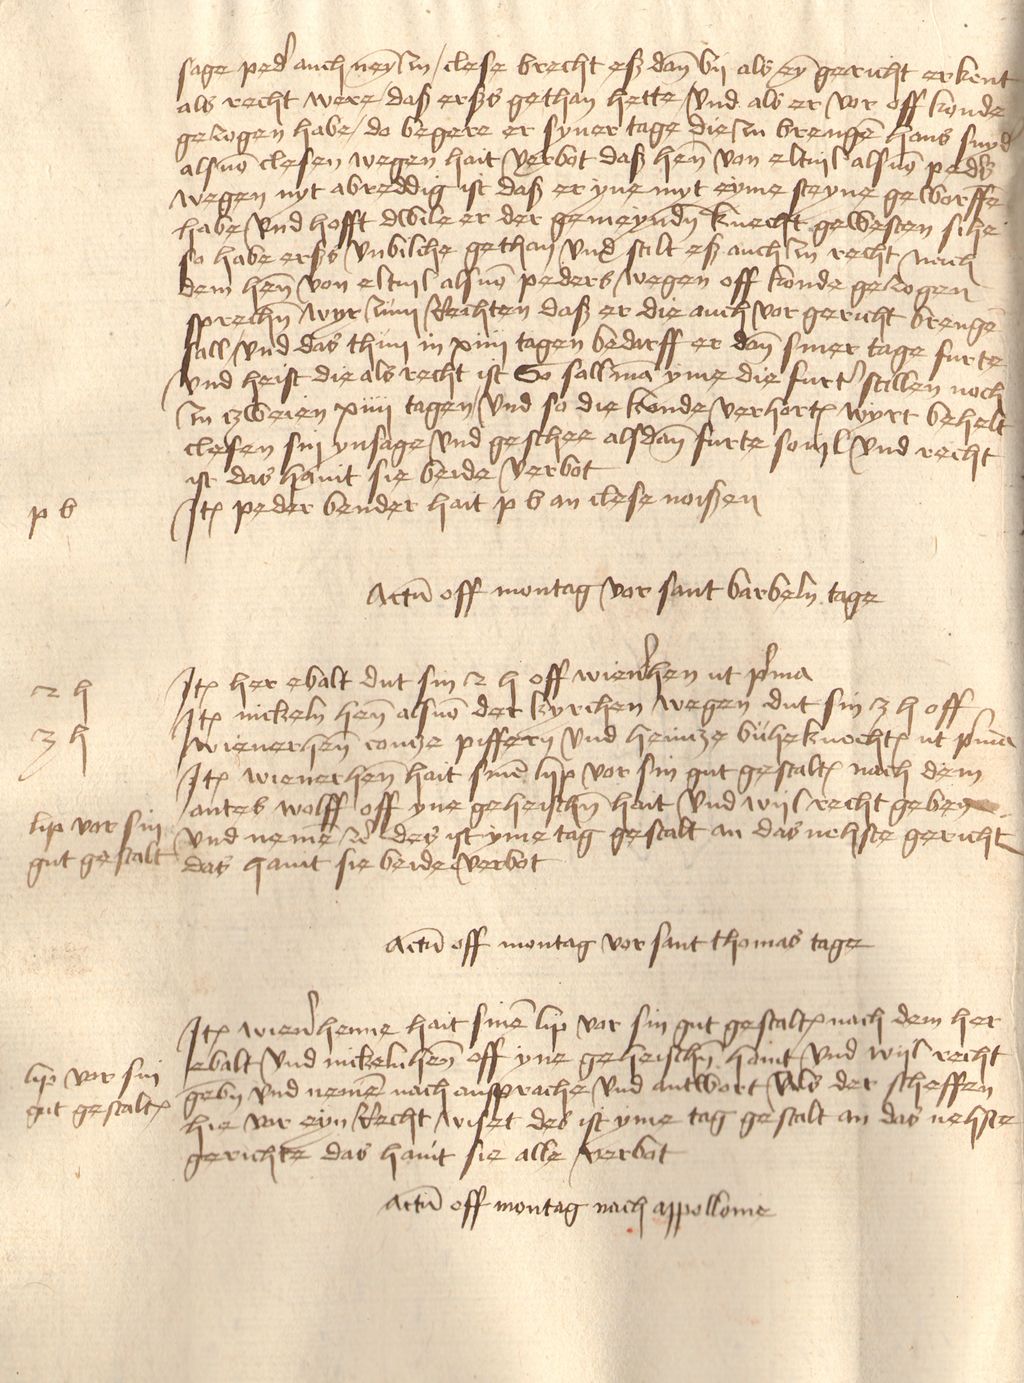 sage ped' auch neyß in / clese brecht eß dan̄ bij als ey̅ gericht erkent
als recht were / daß erßs gethan hette / vnd als er vor off konde
gezogen habe / do begere er syner tage die in brengē hans smyd
alsuō clesen wegen hait verbot daß hen̄ von eltuil alsuō peders
wegen nyt abreddig ist daß er yne myt eyme steyne geworffē
habe vnd hofft dwile er der gemeyndn̄ knecht gewesten sihe
so habe erßs vnbilche gethan vnd stilt eß auch in recht nach
dem hen̄ von eltuil alsuō peders wegen off konde gezogen
sprechn̄ wyr zum Rechten daß er die auch vor gericht brengē
sall vnd das thun in xiiij tagen bedarff er dan̄ siner tage furte
vnd heist die als recht ist So sall mā yme die furt' stillen noch
in zweien xiiij tagen / vnd so die konde verhort wyrt behelt
clesen sin ynsage vnd geschee alsdan̄ furte souil vnd recht
ist das haint sie beide verbot
p b
Itē peder bender hait p b an clese noißen
Actū off montag vor sant barbeln tage
2 h
Itē her ebalt dut sin 2 h off wien'hen ut p'ma
3 h
Itē nickeln hen̄ alsuō der kyrchen wegen dut sin 3 h off
wienerhen̄ contze piffern vnd heintze bůheknecht ut p'ma
Itē wienerhen̄ hait sinē lip vor sin gut gestalt nach dem
antes wolff off yne geheischn̄ hait vnd wyl recht geben
lip vor sin
gut gestalt
vnd nemē des ist yme tag gestalt an das nehste gericht
das haint sie beide verbot
Actū off montag vor sant thomas tage
Itē wien'henne hait sinē lip vor sin gut gestalt nach dem her
ebalt vnd nickelnhen̄ off yne geheischn̄ haint vnd wyl recht
lip vor sin
gut gestalt
gebn vnd nemē nach ansprache vnd antwort Was der scheffen
hie vor eyn Recht wiset des ist yme tag gestalt an das nehste
gerichte das haint sie alle verbot
Actū off montag nach appollonie